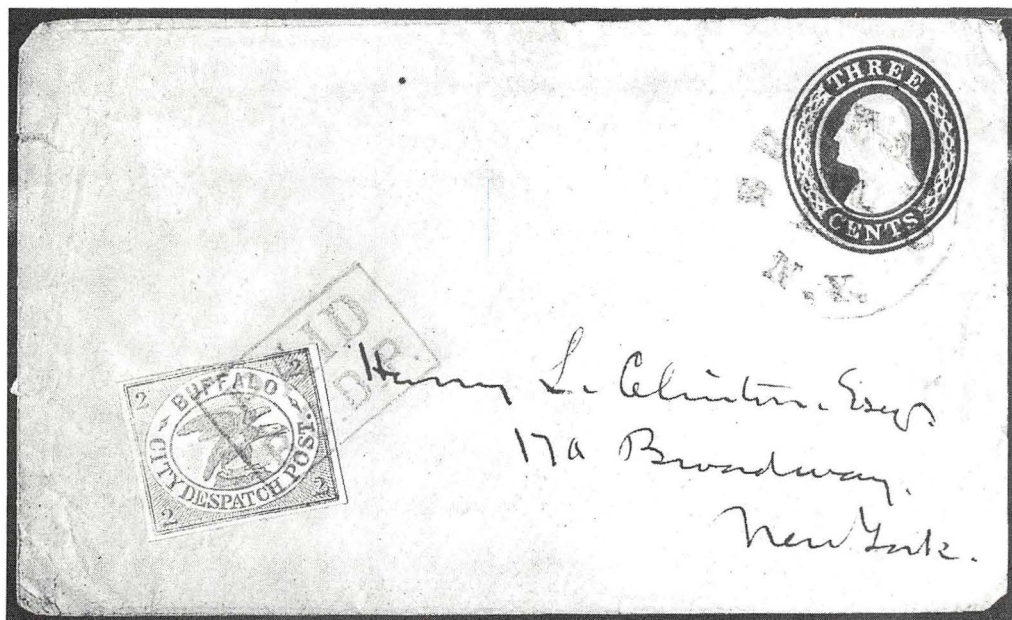 THREE
CENTS
N.Y.
2
2
BUFFALO
CITY DESPATCH POST.
2
2
Henry L. Clinton. Esqr.
170 Broadway.
New York.